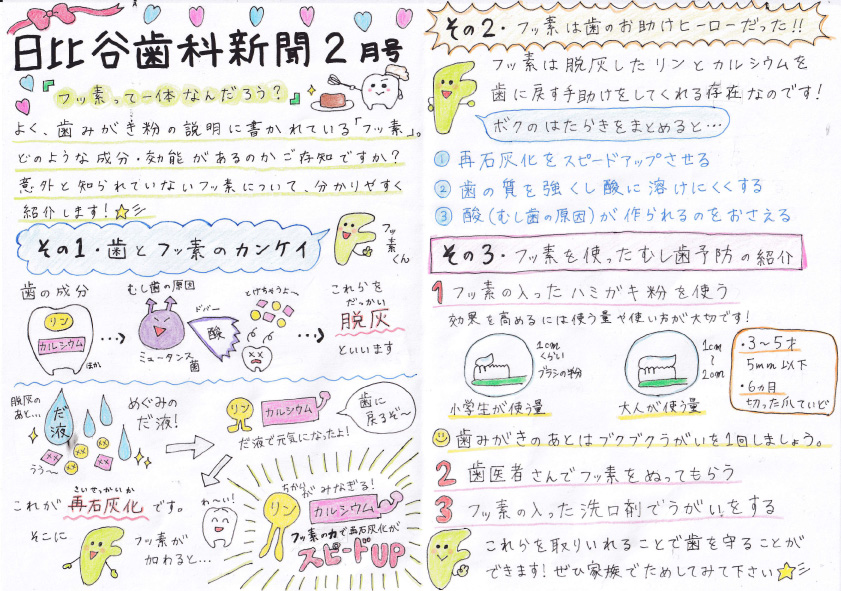 日比谷歯科新聞2月号
フッ素って一体なんだろう?
よく、歯みがき粉の説明に書かれている「フッ素」。
どのような成分・効能があるのかご存知ですか?
意外と知られていないフッ素について、分かりやすく
紹介します!
その1・歯とフッ素のカンケイ
フッ素くん
歯の成分
リン
カルシウム
ほか
むし歯の原因
ミュータンス菌
ドバー
酸
とけちゃうよ〜
これらを
だっかい
脱灰
といいます
脱灰のあと…
だ液
うぅ〜
めぐみの
だ液!
リン
カルシウム
だ液で元気になったよ!
歯に
戻るぞ〜
これが
さいせっかいか
再石灰化
です。
わ〜い!
そこに
フッ素が
加わると…
ちからがみなぎる!
リン
カルシウム
フッ素の力で再石灰化が
スピードUP
その2・フッ素は歯のお助けヒーローだった!!
フッ素は脱灰したリンとカルシウムを
歯に戻す手助けをしてくれる存在なのです!
ボクのはたらきをまとめると…
① 再石灰化をスピードアップさせる
② 歯の質を強くし酸に溶けにくくする
③ 酸(むし歯の原因)が作られるのをおさえる
その3・フッ素を使ったむし歯予防の紹介
1 フッ素の入ったハミガキ粉を使う
効果を高めるには使う量や使い方が大切です!
1cm
くらい
ブラシの粉
小学生が使う量
1cm
〜
2cm
大人が使う量
・3〜5才
5mm以下
・6ヵ月
切った爪ていど
歯みがきのあとはブクブクうがいを1回しましょう。
2 歯医者さんでフッ素をぬってもらう
3 フッ素の入った洗口剤でうがいをする
これらを取りいれることで歯を守ることが
できます!ぜひ家族でためしてみて下さい